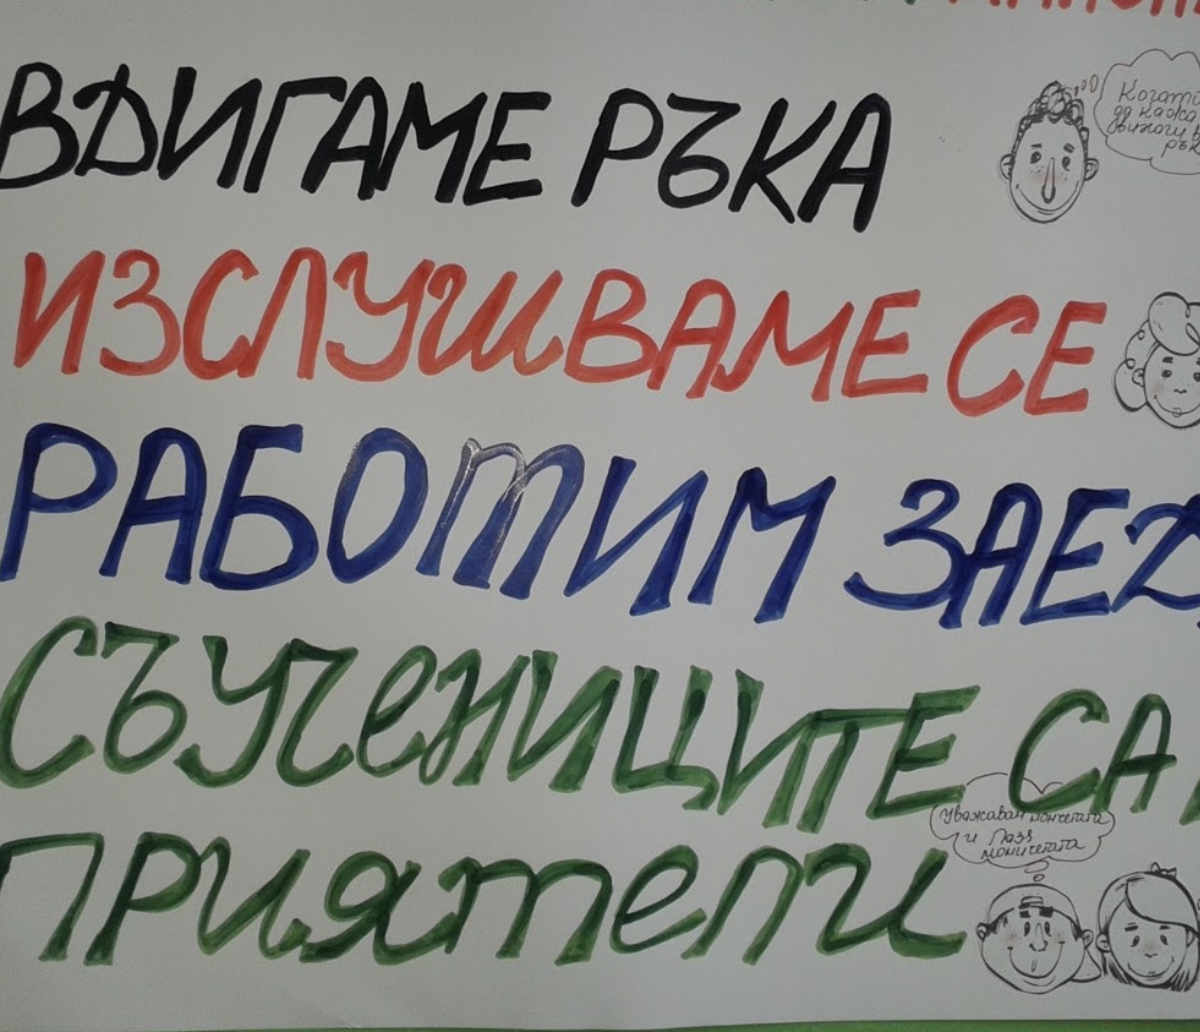 ВДИГАМЕ РЪКА
Когато
да кажа
вдигам
ИЗСЛУШВАМЕ СЕ
РАБОТИМ ЗАЕД
СЪУЧЕНИЦИТЕ СА
Уважавам момчетата
и Пазя
момичетата
ПРИЯТЕЛИ